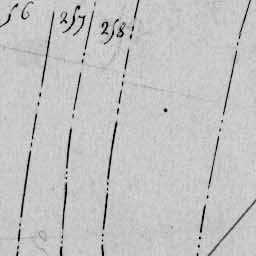 56 257 258